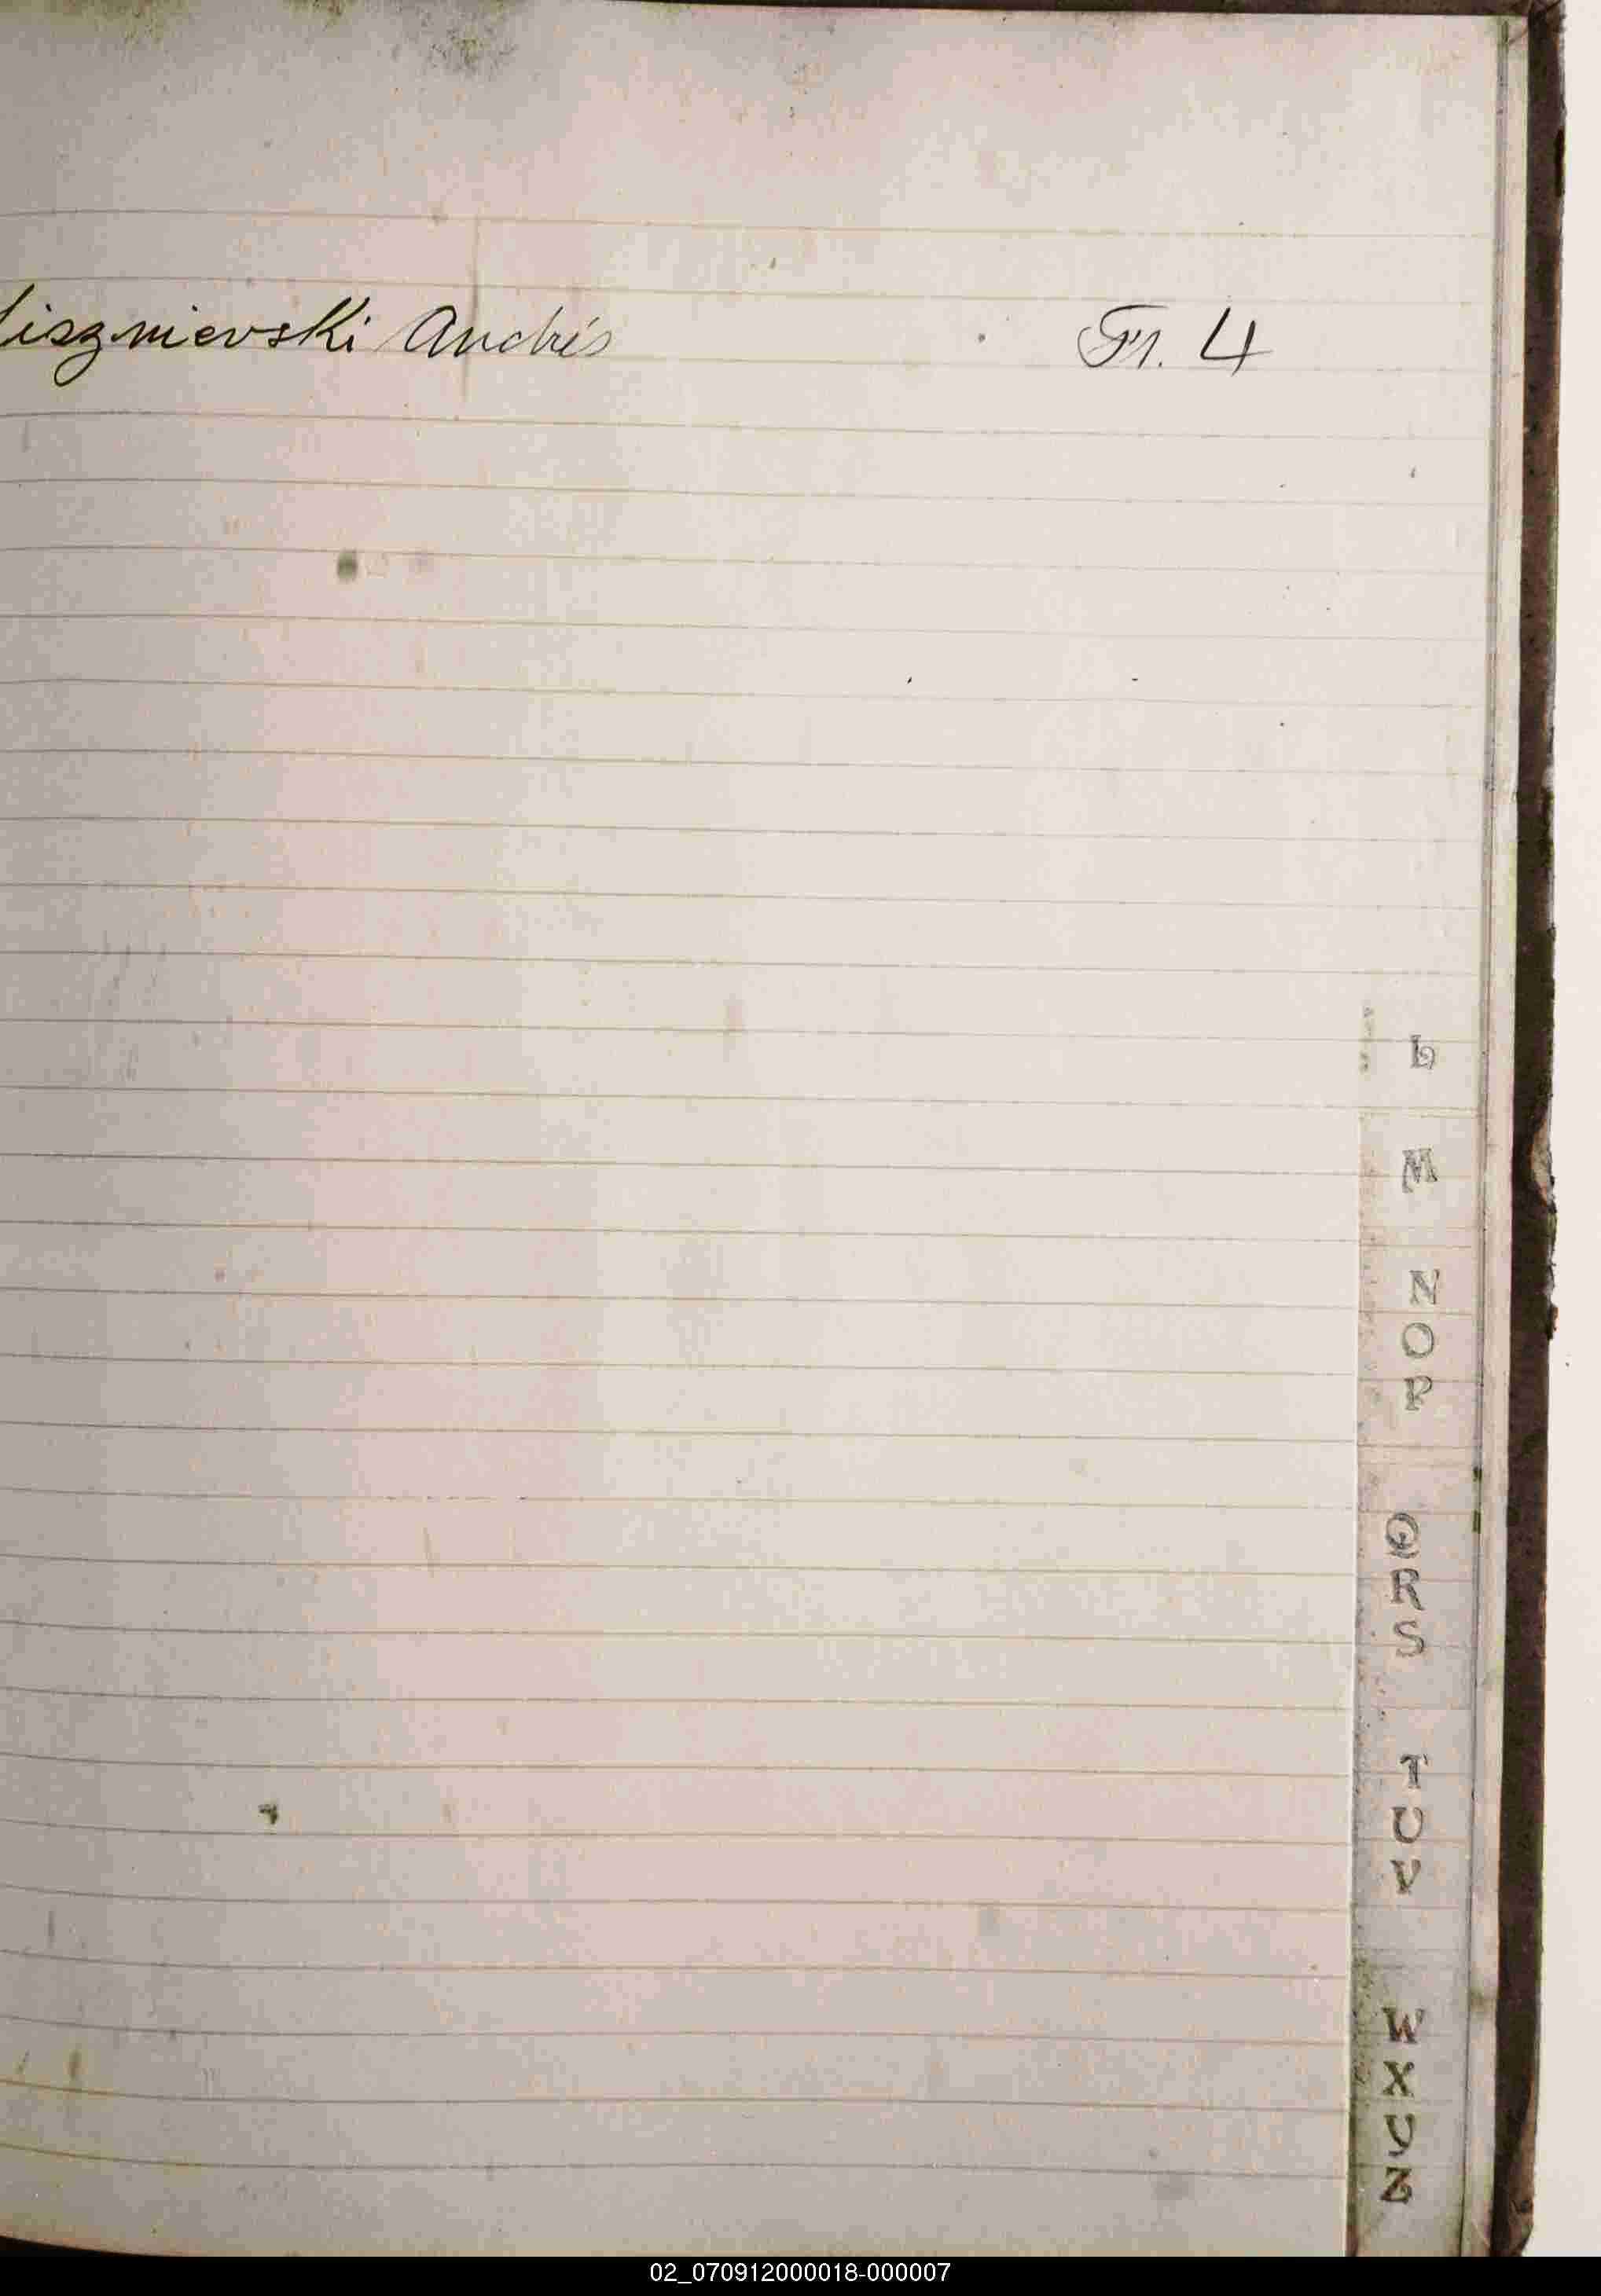 lisznievski Andrés Fr. 4
L
M
N
O
P
Q
R
S
T
U
V
W
X
U
Z
02_070912000018-000007